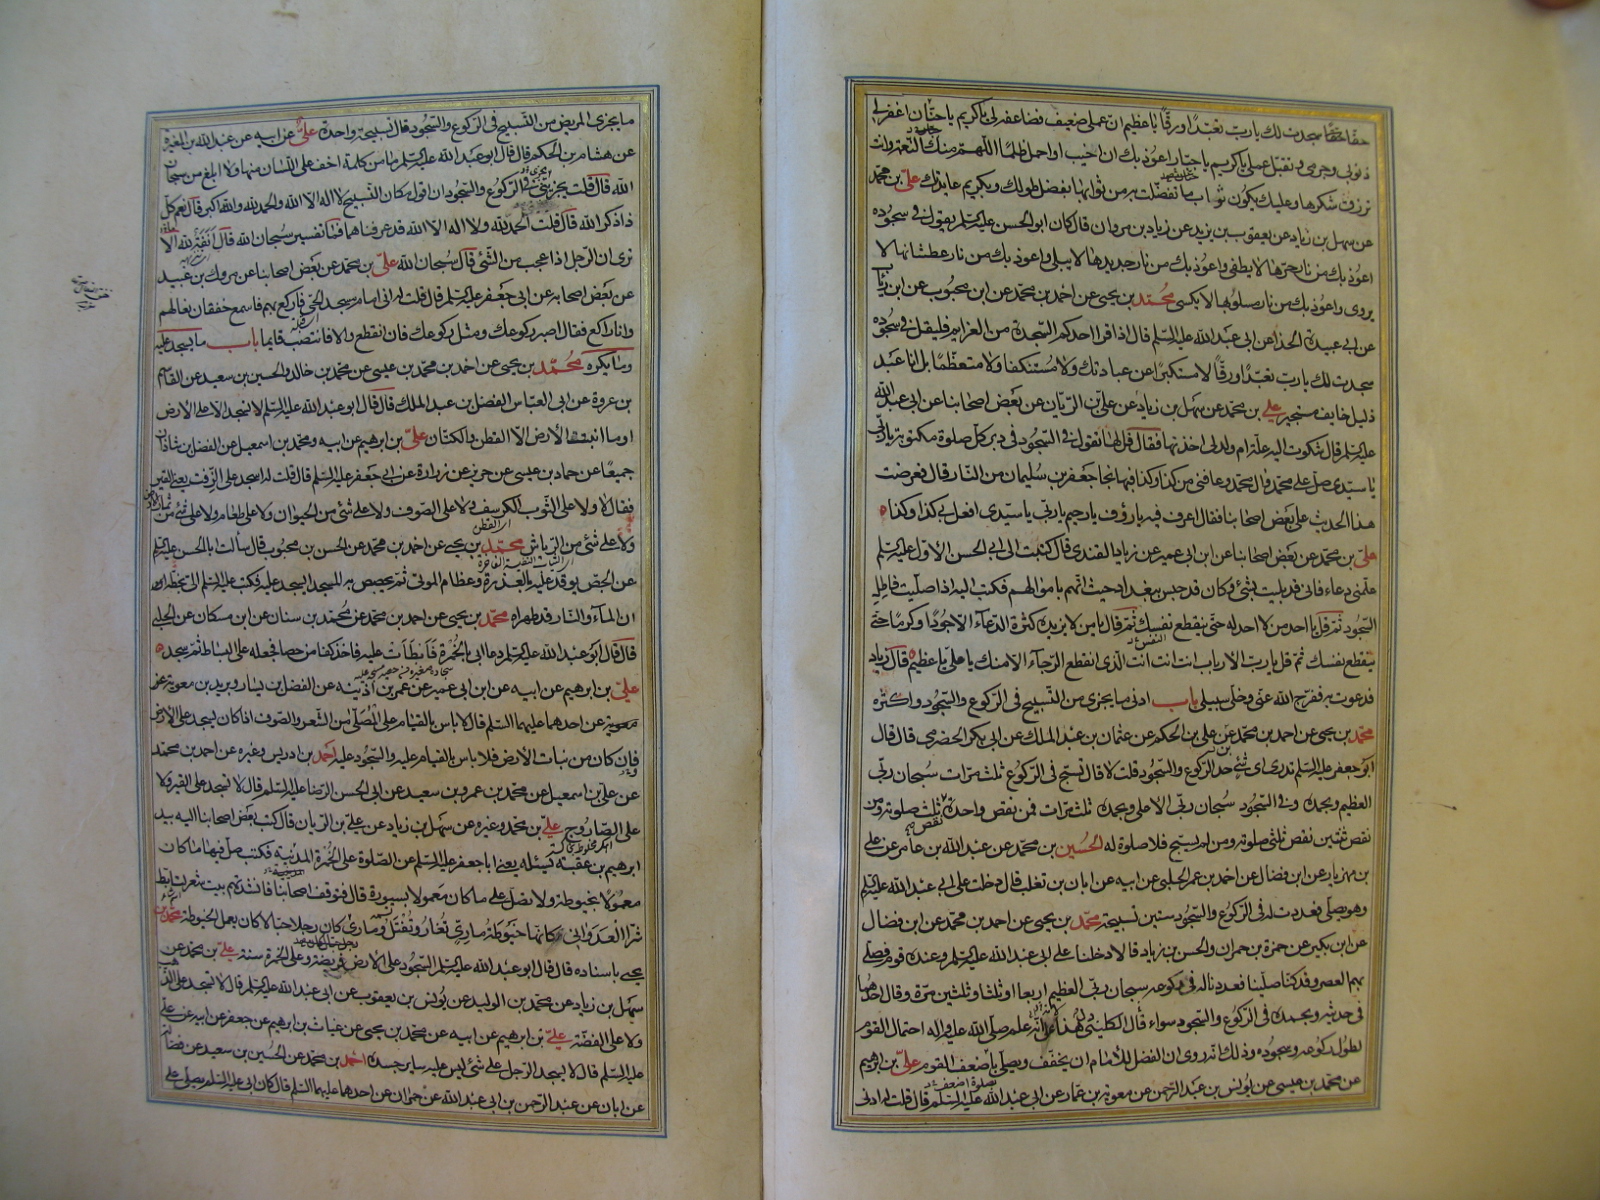 حقا حقا سجدت لك يا رب تعبدا ورقا يا عظيم ان عملي ضعيف فضاعفه لي يا كريم يا حنان اغفر لي
ذنوبي وجرمي وتقبل عملي يا كريم يا جبار اعوذ بك ان اخيب او احمل ظلما اللهم منك النعمة وانت
ترزق شكرها وعليك يكون ثواب ما تفضلت به من ثوابها بفضل طولك وبكريم عايدتك علي بن محمد
عن سهل بن زياد عن يعقوب بن يزيد عن زياد بن مروان قال كان ابو الحسن عليه السلم يقول في سجوده
اعوذ بك من نار حرها لا يطفى واعوذ بك من نار جديدها لا يبلى واعوذ بك من نار عطشانها لا
يروى واعوذ بك من نار مسلوبها لا يكسى محمد بن يحيى عن احمد بن محمد عن ابن محبوب عن ابن رئاب
عن ابي عبيدة الحذاء عن ابي عبد الله عليه السلم قال اذا قرا احدكم السجدة من العزايم فليقل في سجوده
سجدت لك يا رب تعبدا ورقا لا مستكبرا عن عبادتك ولا مستنكفا ولا متعظما بل انا عبد
ذليل خايف مستجير علي بن محمد عن سهل بن زياد عن علي بن الريان عن بعض اصحابنا عن ابي عبد الله
عليه السلم قال شكوت اليه علة ام ولد لي اخذتها فقال قل لها تقول في السجود في دبر كل صلوة مكتوبة يا ربي
يا سيدي صل على محمد وال محمد وعافني من كذا وكذا فبها نجا جعفر بن سليمان من النار قال فعرضت
هذا الحديث على بعض اصحابنا فقال اعرف فيه يا رؤف يا رحيم يا ربي يا سيدي افعل بي كذا وكذا
علي بن محمد عن بعض اصحابنا عن ابن ابي عمير عن زياد القندي قال كتبت الى ابي الحسن الاول عليه السلم
علمني دعاء فاني قد بليت بشئ وكان قد حبس ببغداد حيث اتهم باموالهم فكتب اليه اذا صليت فاطل
السجود ثم قل يا احد من لا احد له حتى ينقطع نفسك ثم قال يا من لا يزيده كثرة الدعاء الا جودا وكرما حتى
ينقطع نفسك ثم قل يا رب الارباب انت انت انت الذي انقطع الرجاء الا منك يا علي يا عظيم قال زياد
فدعوت به ففرج الله عني وخلى سبيلي باب ادنى ما يجزى من التسبيح في الركوع والسجود واكثره
محمد بن يحيى عن احمد بن محمد عن علي بن الحكم عن عثمان بن عبد الملك عن ابي بكر الحضرمي قال قال
ابو جعفر عليه السلم تدري اي شئ حد الركوع والسجود قلت لا قال تسبح في الركوع ثلث مرات سبحان ربي
العظيم وبحمده وفي السجود سبحان ربي الاعلى وبحمده ثلث مرات فمن نقص واحدة نقص ثلث صلوته ومن
نقص ثنتين نقص ثلثي صلوته ومن لم يسبح فلا صلوة له الحسين بن محمد عن عبد الله بن عامر عن علي
بن مهزيار عن ابن فضال عن احمد بن عمر الحلبي عن ابيه عن ابان بن تغلب قال دخلت على ابي عبد الله عليه السلم
وهو يصلي فعددت له في الركوع والسجود ستين تسبيحة محمد بن يحيى عن احمد بن محمد عن ابن فضال
عن ابن بكير عن حمزة بن حمران والحسن بن زياد قالا دخلنا على ابي عبد الله عليه السلم وعنده قوم فصلى
بهم العصر وقد كنا صلينا فعددنا له في ركوعه سبحان ربي العظيم اربعا او ثلثا وثلثين مرة وقال احدهما
في حديثه وبحمده في الركوع والسجود سواء قال الكليني هذا لانه علم صلى الله عليه واله احتمال القوم
لطول ركوعه وسجوده وذلك انه روى ان الفضل للامام ان يخفف ويصلي باضعف القوم علي بن ابرهيم
عن محمد بن عيسى عن يونس بن عبد الرحمن عن معوية بن عمار عن ابي عبد الله عليه السلم قال قلت له ادنى
ما يجزى المريض من التسبيح في الركوع والسجود قال تسبيحة واحدة علي عن ابيه عن عبد الله بن المغيرة
عن هشام بن الحكم قال قال ابو عبد الله عليه السلم ما من كلمة اخف على اللسان منها ولا ابلغ من سبحان
الله قال قلت يجزيني في الركوع والسجود ان اقول مكان التسبيح لا اله الا الله والحمد لله والله اكبر قال نعم كل
ذا ذكر الله قال قلت الحمد لله ولا اله الا الله قد عرفناهما فما تفسير سبحان الله قال انفة لله الا
ترى ان الرجل اذا عجب من الشئ قال سبحان الله علي بن محمد عن بعض اصحابنا عن مروك بن عبيد
عن بعض اصحابه عن ابي جعفر عليه السلم قال قلت له اني امام مسجد الحي فاركع بهم فاسمع خفقان نعالهم
وانا راكع فقال اصبر ركوعك ومثل ركوعك فان انقطع والا فانتصب قايما باب ما يسجد عليه
وما يكره محمد بن يحيى عن احمد بن محمد بن عيسى عن محمد بن خالد والحسين بن سعيد عن القاسم
بن عروة عن ابي العباس الفضل بن عبد الملك قال قال ابو عبد الله عليه السلم لا تسجد الا على الارض
او ما انبتت الارض الا القطن والكتان علي بن ابرهيم عن ابيه ومحمد بن اسمعيل عن الفضل بن شاذان
جميعا عن حماد بن عيسى عن حريز عن زرارة عن ابي جعفر عليه السلم قال قلت له اسجد على الزفت يعني القير
فقال لا ولا على الثوب الكرسف ولا على الصوف ولا على شئ من الحيوان ولا على طعام ولا على شئ من ثمار الارض
ولا على شئ من الرياش محمد بن يحيى عن احمد بن محمد عن الحسن بن محبوب قال سالت ابا الحسن عليه السلم
عن الجص يوقد عليه بالعذرة وعظام الموتى ثم يجصص به المسجد ايسجد عليه فكتب عليه السلم الي بخطه
ان الماء والنار قد طهراه محمد بن يحيى عن احمد بن محمد عن محمد بن سنان عن ابن مسكان عن الحلبي
قال قال ابو عبد الله عليه السلم دعا ابي بالخمرة فابطأت عليه فاخذ كفا من حصا فجعله على البساط ثم سجد
علي بن ابرهيم عن ابيه عن ابن ابي عمير عن عمر بن اذينه عن الفضل بن يسار وبريد بن معوية عن
احدهما عليهما السلم قال لا باس بالقيام على المصلى من الشعر والصوف اذا كان يسجد على الارض
فان كان من نبات الارض فلا باس بالقيام عليه والسجود عليه احمد بن ادريس وغيره عن احمد بن محمد
عن علي بن اسمعيل عن محمد بن عمرو بن سعيد عن ابي الحسن الرضا عليه السلم قال لا تسجد على القير ولا
على الصاروج علي بن محمد وغيره عن سهل بن زياد عن علي بن الريان قال كتب بعض اصحابنا اليه بيد
ابرهيم بن عقبة يسئله يعني ابا جعفر عليه السلم عن الصلوة على الخمرة المدنية فكتب صل فيها ما كان
معمولا بخيوطة ولا تصل على ما كان معمولا بسيورة قال فتوقف اصحابنا فانشدتهم بيت شعر لتابط
شرا العدواني كانها خيوطة ماري تغار وتفتل وماري كان رجلا حبالا كان يعمل الخيوطة محمد بن
يحيى باسناده قال قال ابو عبد الله عليه السلم السجود على الارض فريضة وعلى الخمرة سنة علي بن محمد عن
سهل بن زياد عن محمد بن الوليد عن يونس بن يعقوب عن ابي عبد الله عليه السلم قال لا تسجد على الذهب
ولا على الفضة علي بن ابرهيم عن ابيه عن محمد بن يحيى عن غياث بن ابرهيم عن جعفر عن ابيه عن علي
عليه السلم قال لا يسجد الرجل على شئ ليس عليه ساير جسده احمد بن محمد عن الحسين بن سعيد عن فضالة
عن ابان عن عبد الرحمن بن ابي عبد الله عن حمران عن احدهما عليهما السلم قال كان ابي عليه السلم يصلي على